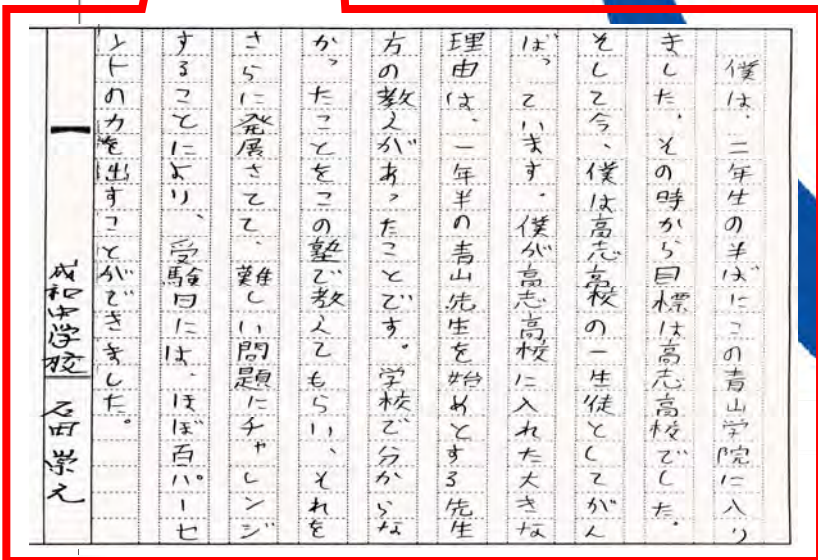 僕は、二年生の半ばにこの青山学院に入り
ました。その時から目標は高志高校でした。
そして今、僕は高志高校の一生徒としてがん
ばっています。僕が高志高校に入れた大きな
理由は、一年半の青山先生を始めとする先生
方の教えがあったことです。学校で分からな
かったことをこの塾で教えてもらい、それを
さらに発展させて、難しい問題にチャレンジ
することにより、受験日には、ほぼ百パーセ
ントの力を出すことができました。
成和中学校 石田崇元